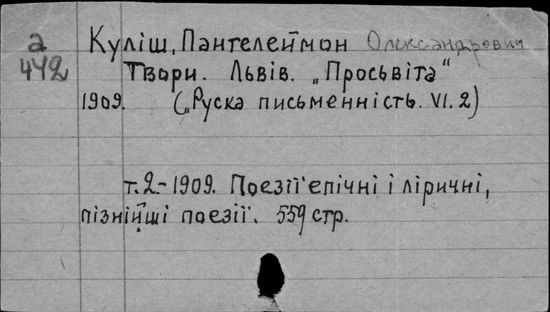 а
442
Куліш, Пантелеймон Олександрович
Твори. Львів. „Просьвіта“
1909. („Руска письменність. VI. 2)
т.2.-1909. Поезії епічні і ліричні,
пізнійші поезії. 559 стр.